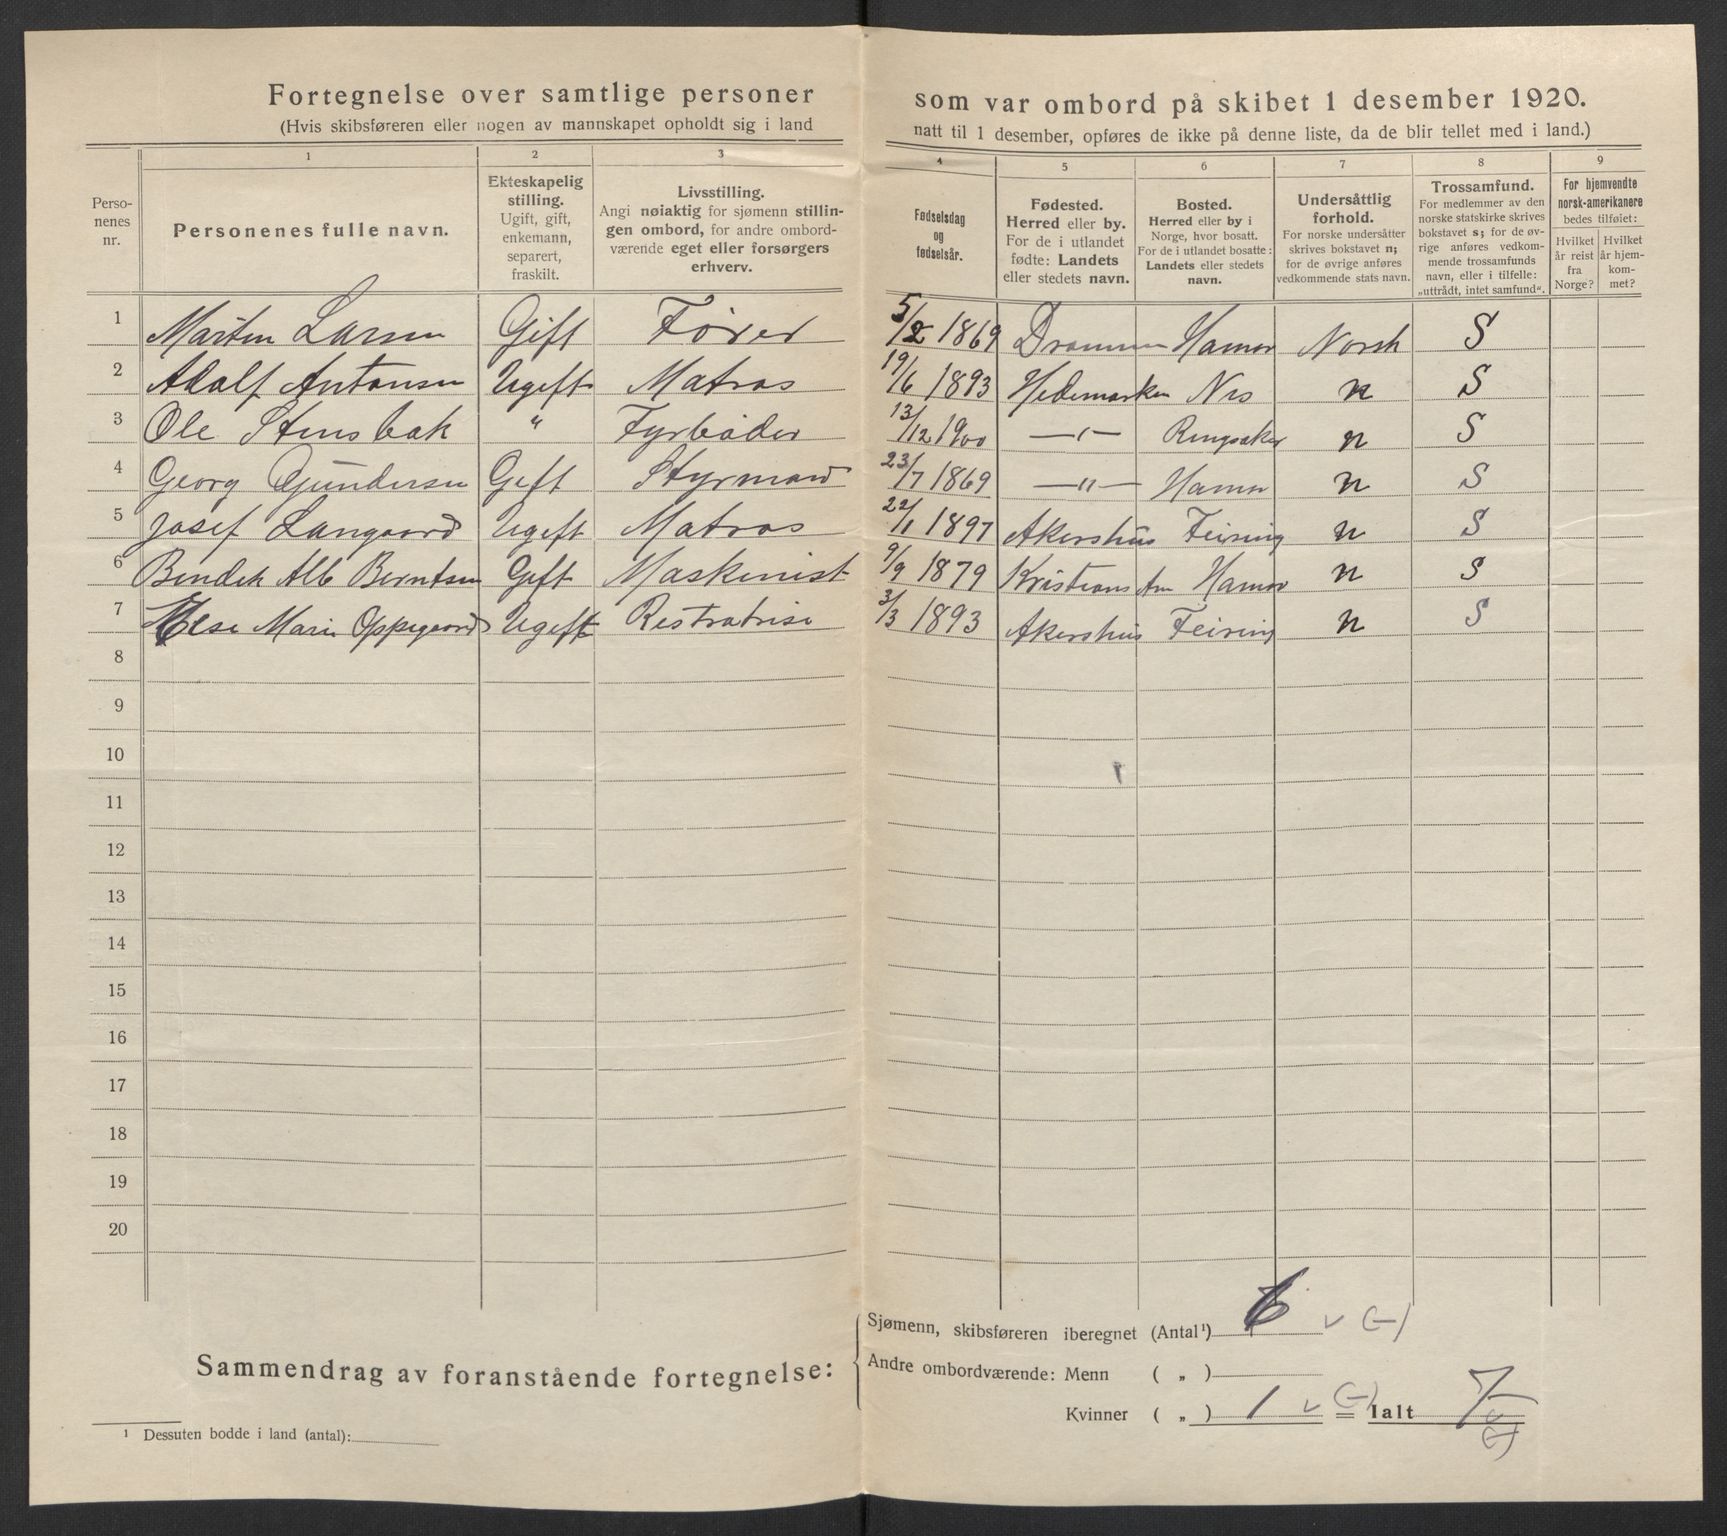 Fortegnelse over samtlige personer som var ombord på skibet 1 desember 1920.
(Hvis skibsføreren eller nogen av mannskapet opholdt sig i land natt til 1 desember, opføres de ikke på denne liste, da de blir tellet med i land.)
1 2 3 4 5 6 7 8 9
Perso-
nenes
nr.
Personenes fulle navn.
Ekteskapelig
stilling.
Ugift, gift,
enkemann,
separert,
fraskilt.
Livsstilling.
Angi nøiaktig for sjømenn stillin-
gen ombord, for andre ombord-
værende eget eller forsørgers
erhverv.
Fødselsdag
og
fødselsår.
Fødested.
Herred eller by.
For de i utlandet
fødte: Landets
eller stedets navn.
Bosted.
Herred eller by i
Norge, hvor bosatt.
For de i utlandet bosatte:
Landets eller stedets
navn.
Undersåttlig
forhold.
For norske undersåtter
skrives bokstavet n;
for de øvrige anføres
vedkommende stats navn.
Trossamfund.
For medlemmer av den
norske statskirke skrives
bokstavet s; for de øv-
rige anføres vedkom-
mende trossamfunds
navn, eller i tilfelle:
„uttrådt, intet samfund".
For hjemvendte
norsk-amerikanere
bedes tilføiet:
Hvilket
år reist
fra
Norge?
Hvilket
år hjem-
kom-
met?
1 Martin Larsen Gift Fører 5/2 1869 Drammen Hamar Norsk S
2 Adolf Antonsen Ugift Matros 19/6 1893 Hedemarken Nes n S
3 Ole Stensbak " Fyrbøder 13/12 1900 —"— Ringsaker n S
4 Georg Gundersen Gift Styrmand 23/7 1869 —"— Hamar n S
5 Josef Langaard Ugift Matros 22/1 1897 Akershus Feiring n S
6 Bendik Alb Berntsen Gift Maskinist 9/9 1879 Kristians Am Hamar n S
7 Else Marie Oppegaard Ugift Restratrise 3/3 1893 Akershus Feiring n S
8
9
10
11
12
13
14
15
16
17
18
19
20
Sammendrag av foranstående fortegnelse:
Sjømenn, skibsføreren iberegnet (Antal¹) 6 v (-)
Andre ombordværende: Menn ( „ )
Kvinner ( „ ) 1 v (-) = Ialt 7
v
(-)
¹ Dessuten bodde i land (antal):